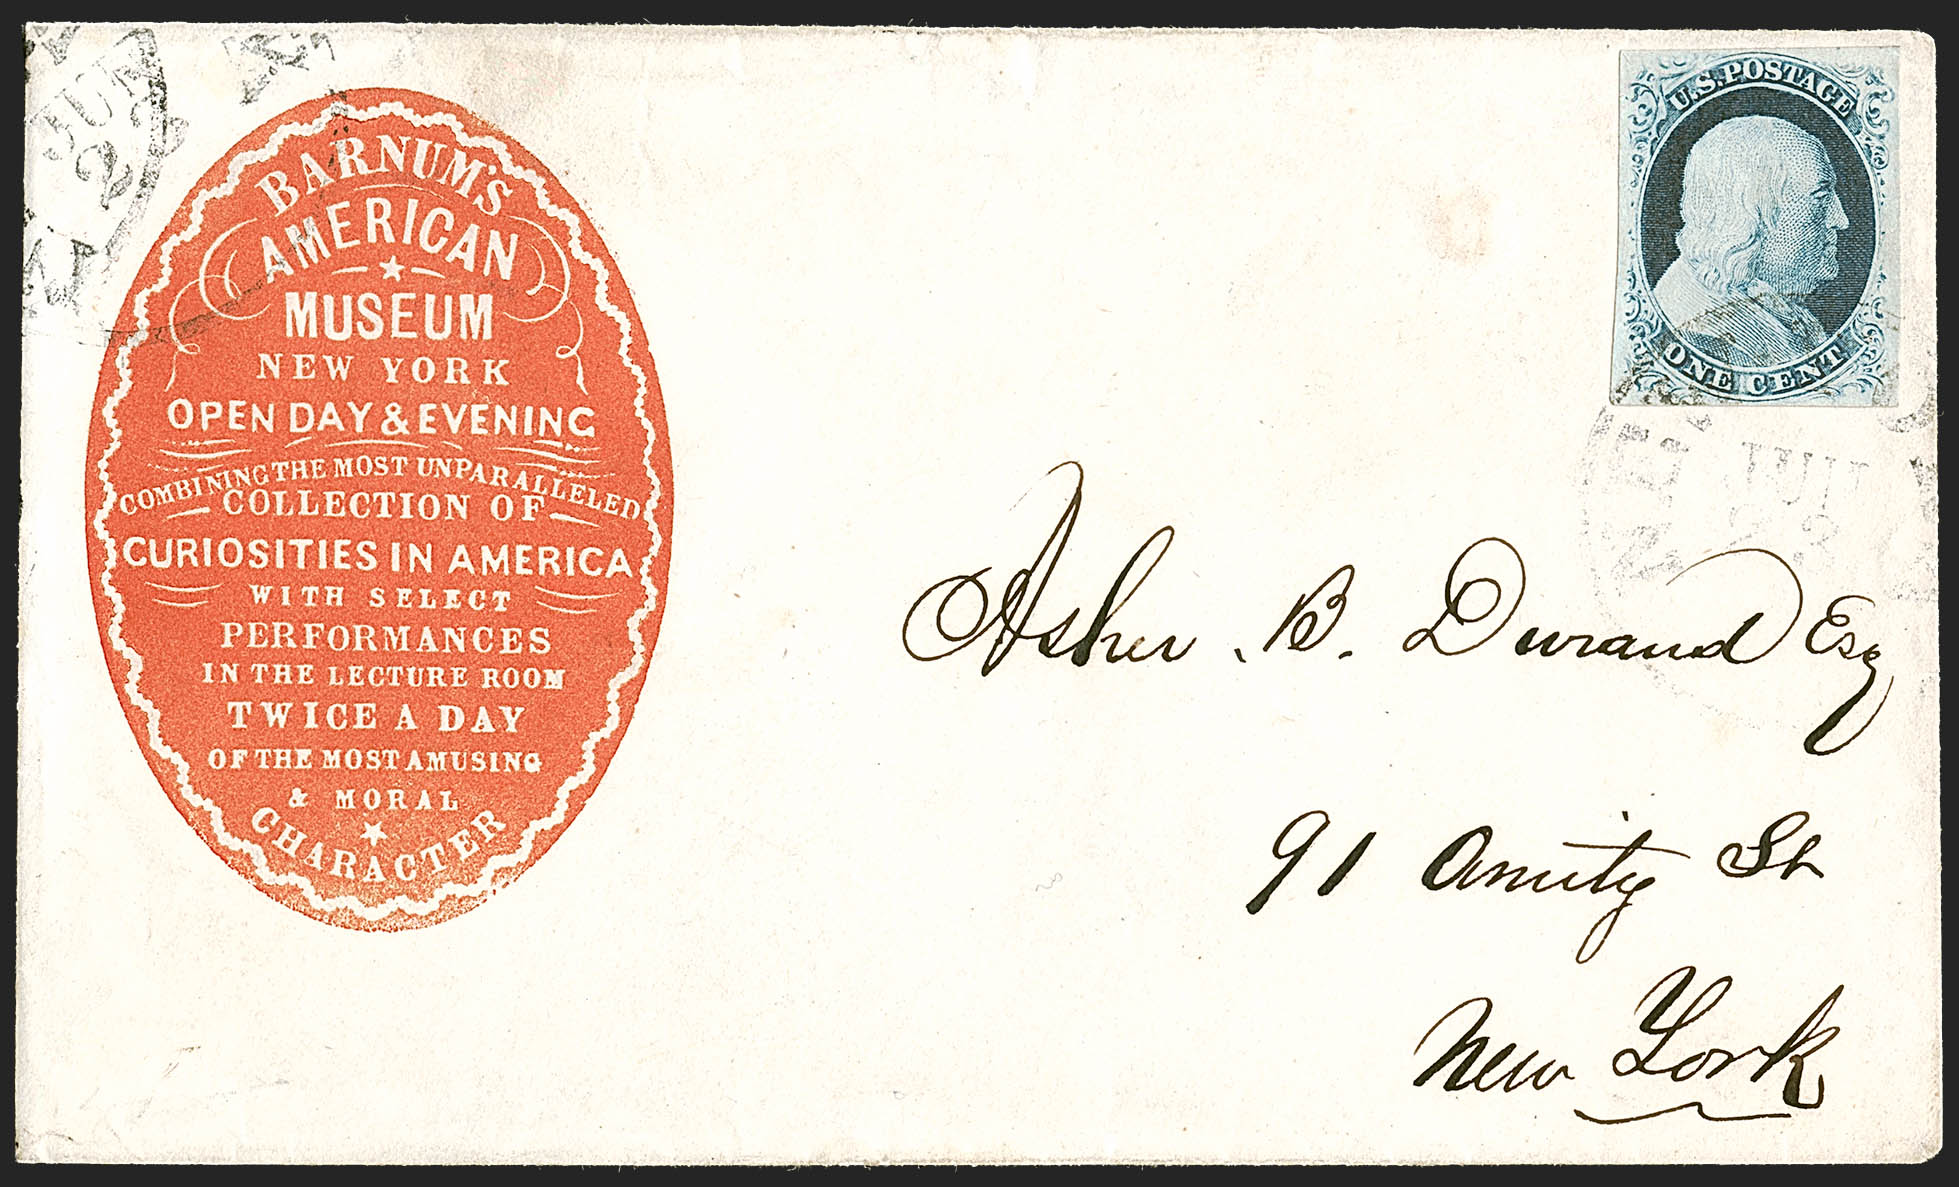 BARNUM'S
AMERICAN
MUSEUM
NEW YORK
OPEN DAY & EVENING
COMBINING THE MOST UNPARALLELED
COLLECTION OF
CURIOSITIES IN AMERICA
WITH SELECT
PERFORMANCES
IN THE LECTURE ROOM
TWICE A DAY
OF THE MOST AMUSING
& MORAL
CHARACTER
U.S. POSTAGE
ONE CENT
Asher . B. Durand Esq
91 Amity St
New York
JUN
JUN